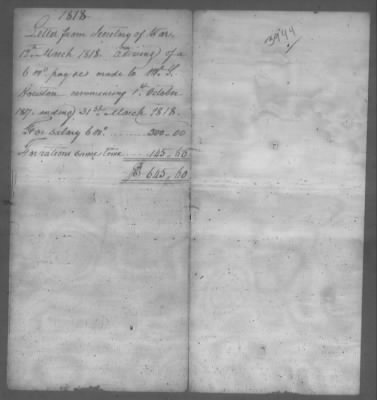 1818.
Letter from Secretary of War,
12th March 1818. advising of a
6 mos. pay &c made to Mr. S.
Houston commencing 1st October
1817. ending 31st March 1818.
For salary 6 mos. ........ 500-00
For rations same time .... 145-60
$ 645,60
3944